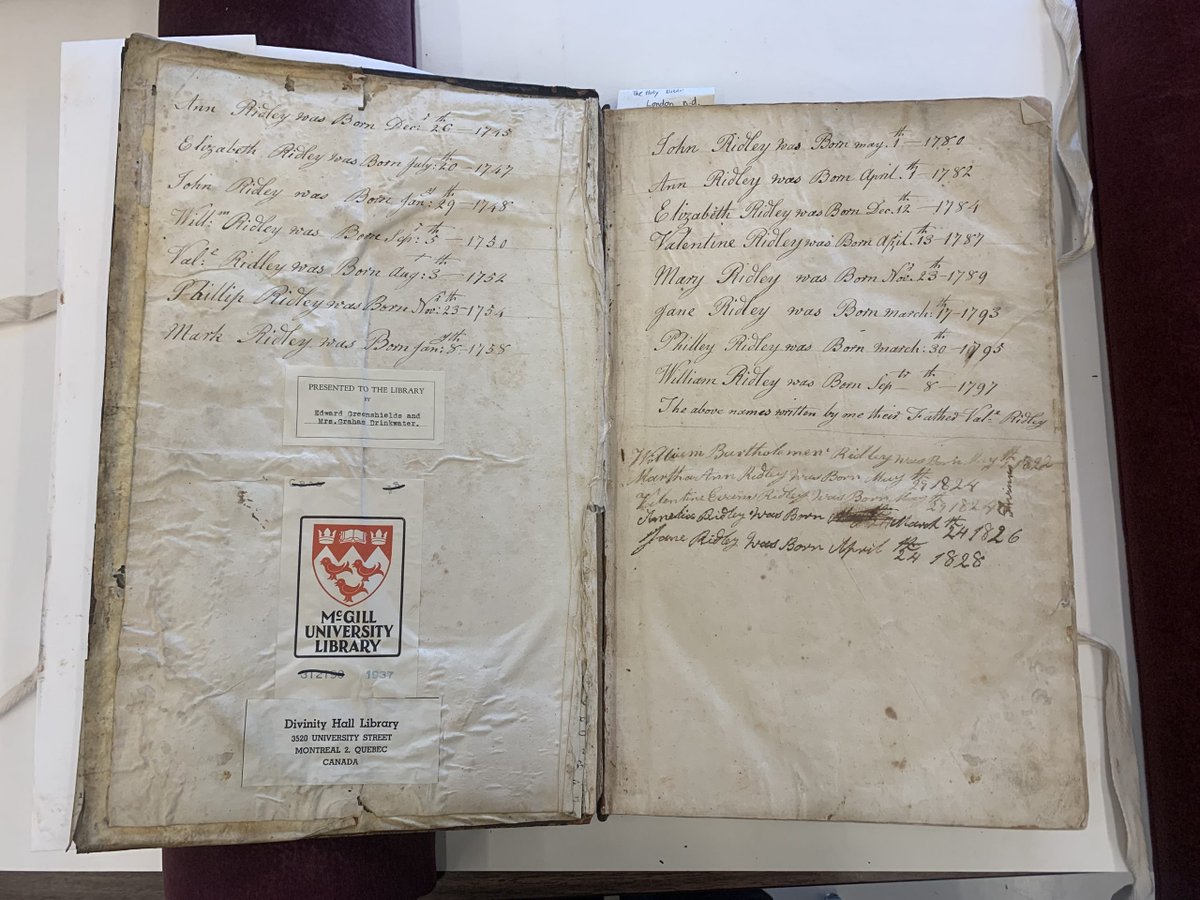 Ann Ridley was Born Decr. 26th — 1745
Elizabeth Ridley was Born July: 20th — 1747
John Ridley was Born Jan: 29th — 1748
Will:m Ridley was Born Sepr: 5th — 1750
Val:e Ridley was Born Aug: 3th — 1752
Phillip Ridley was Born Nov: 23th — 1754
Mark Ridley was Born Jan: 8th — 1758
PRESENTED TO THE LIBRARY
BY
Edward Greenshields and
Mrs. Graham Drinkwater.
McGILL
UNIVERSITY
LIBRARY
312190 1937
Divinity Hall Library
3520 UNIVERSITY STREET
MONTREAL 2, QUEBEC
CANADA
The Holy Bible
London n.d.
John Ridley was Born may. 1th — 1780
Ann Ridley was Born April. th 1782
Elizabeth Ridley was Born Dec. 12th — 1784
Valentine Ridley was Born April. 13th — 1787
Mary Ridley was Born Nov. 23d — 1789
Jane Ridley was Born march. 17th — 1793
Philley Ridley was Born march. 30th — 1795
William Ridley was Born Sepr 8th — 1797
The above names written by me their Father Val:e Ridley
William Bartholomew Ridley was Born May th 1822
Martha Ann Ridley was Born May th 1824
Valentine Ridley was Born th 29 182
Amelia Ridley was Born March th 24 1826
Jane Ridley was Born April th 24 1828